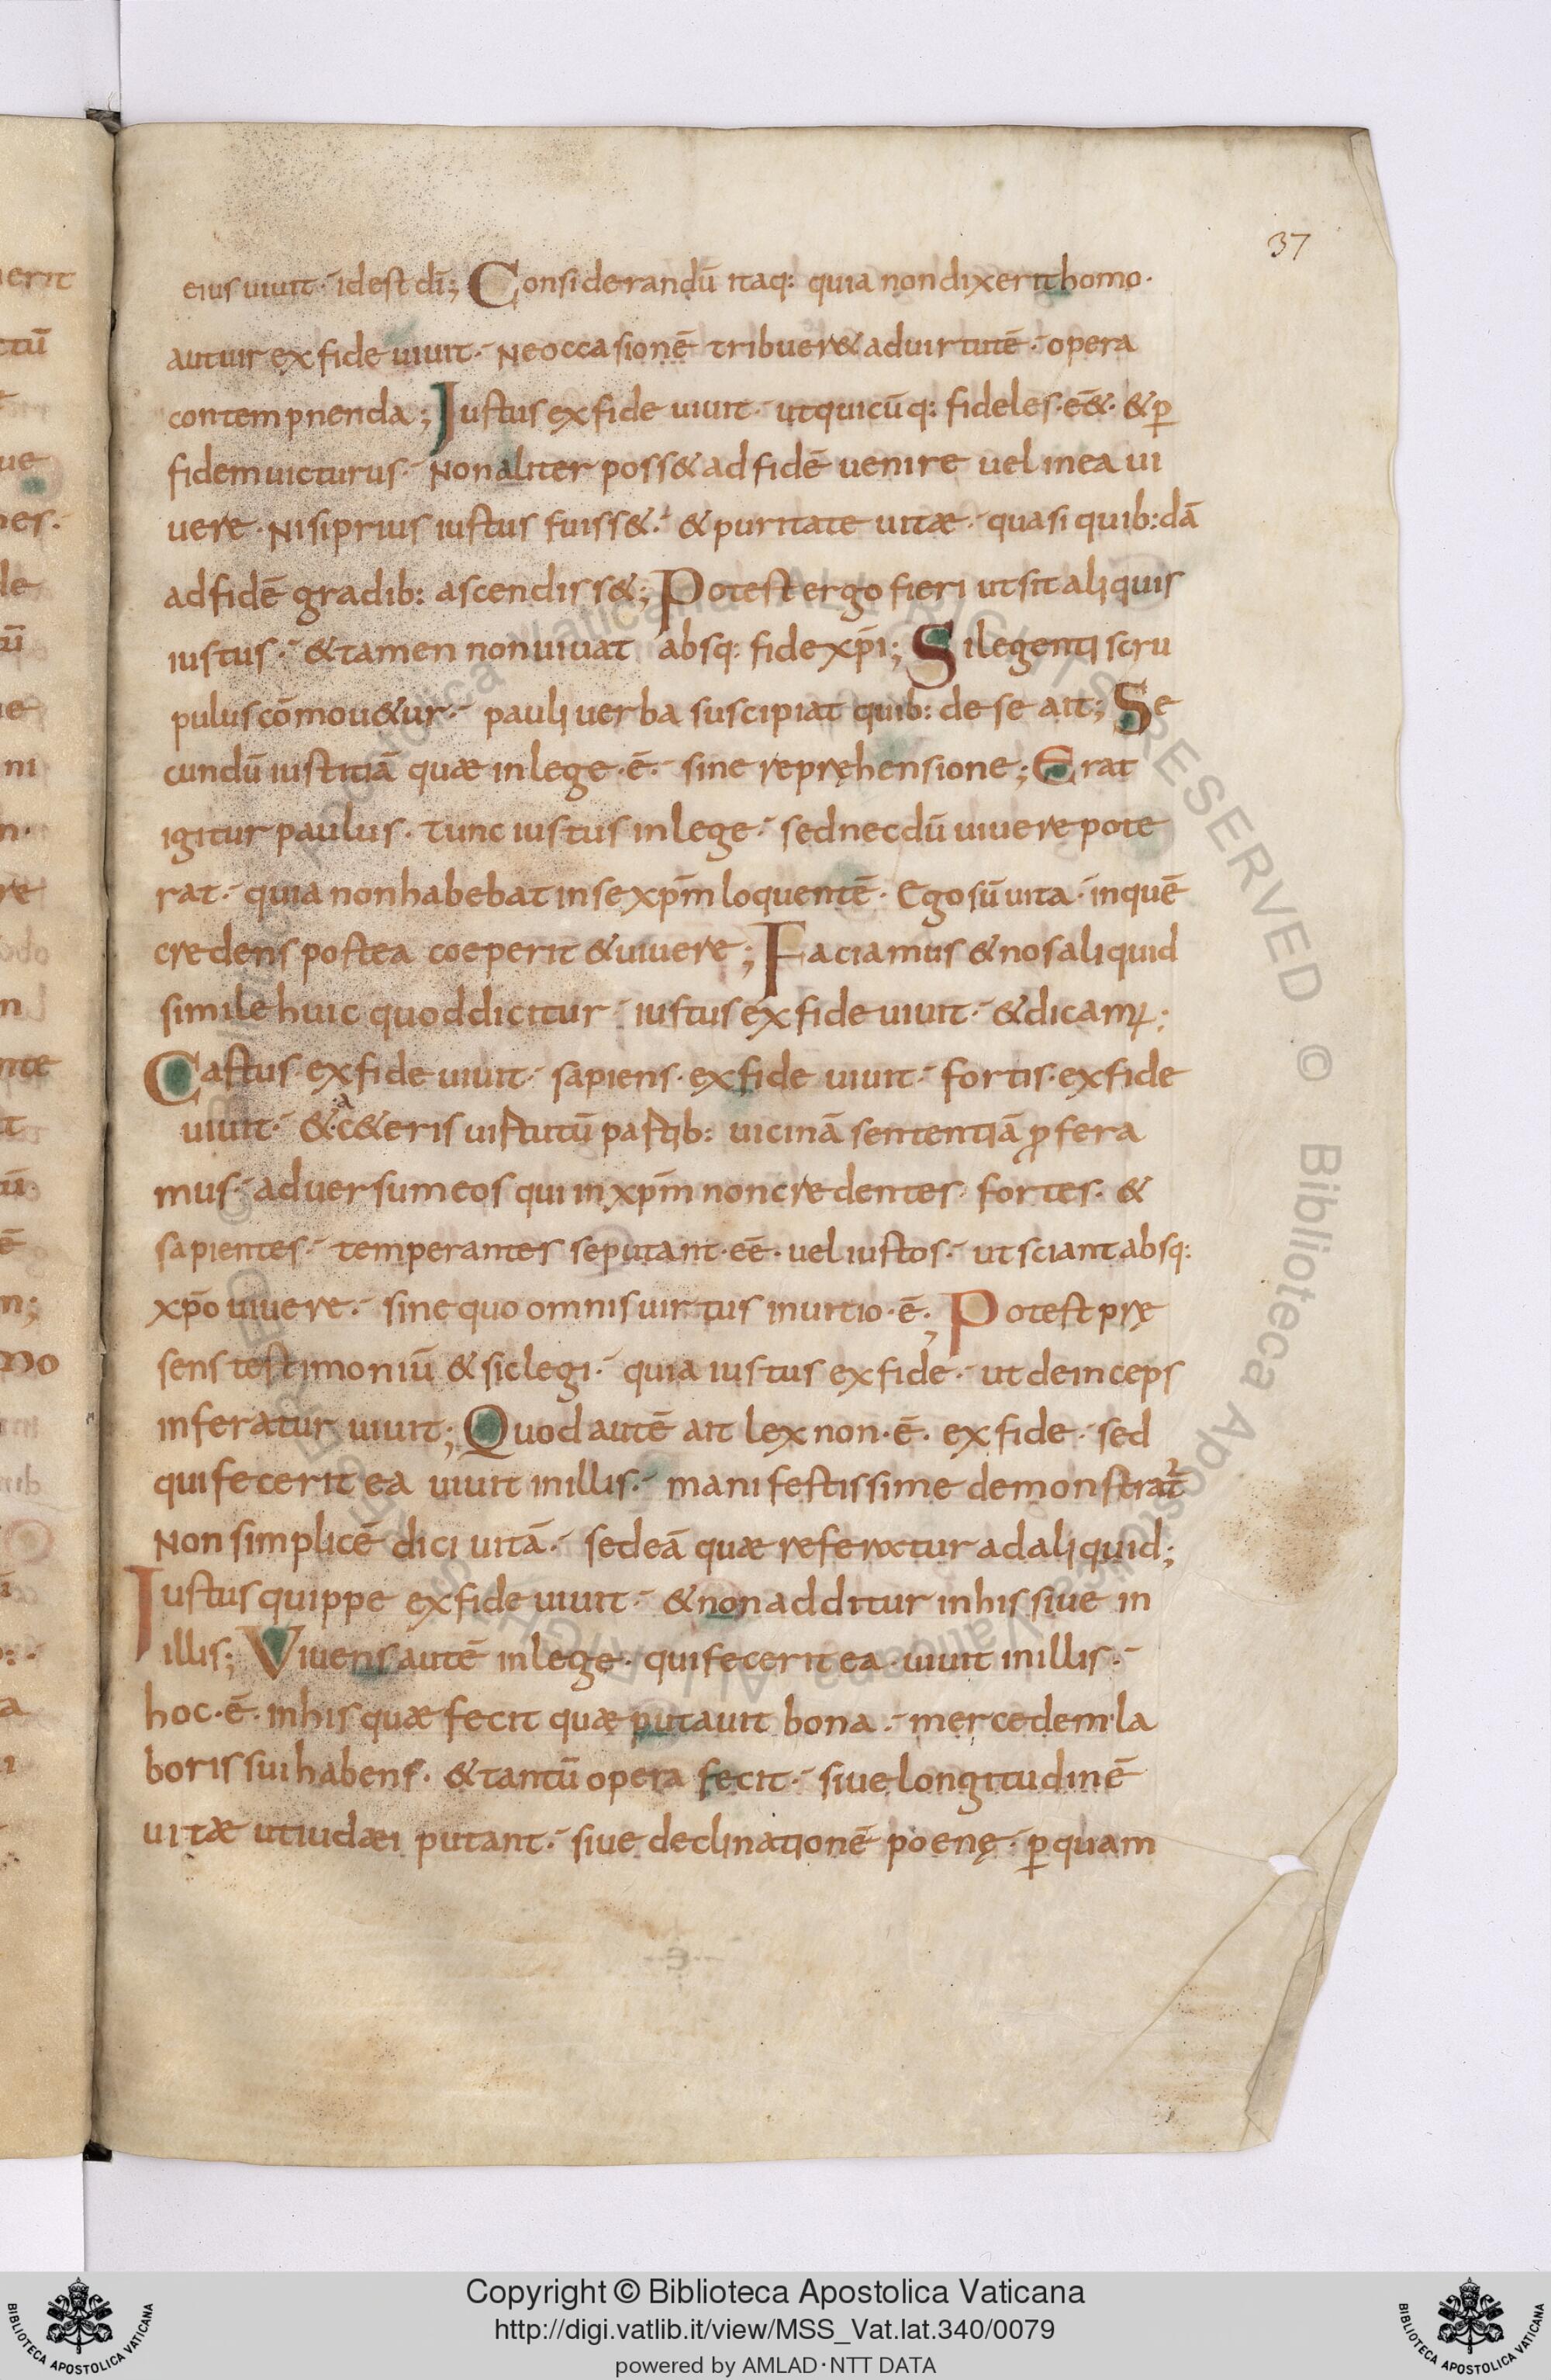 37
eius uiuit· idest dī; Considerandū itaq: quia nondixerit homo·
autuir exfide uiuit· Neoccasionē tribuer& aduirtutē· opera
contempnenda; Iustus exfide uiuit· utquicūq: fideles·eē&· &ꝑ
fidem uicturus· Nonaliter poss& adfidē uenire uel inea ui
uere· Nisiprius iustus fuiss&· &puritate uitæ· quasi quib:dā
adfidē gradib: ascendiss&; Potest ergo fieri utsit aliquis
iustus· &tamen nonuiuat absq: fide xp̄i; Silegenti scru
pulus cōmou&ur· pauli uerba suscipiat quib: de se ait; Se
cundū iustitiā quæ inlege·ē· sine repręhensione; Erat
igitur paulus· tunc iustus inlege· sed necdū uiuere pote
rat· quia nonhabebat inse xp̄m loquentē· Ego sū uita· inquē
credens postea coeperit &uiuere; Faciamus &nos aliquid
simile huic quoddicitur· iustus exfide uiuit· &dicamꝰ;
Castus exfide uiuit· sapiens· exfide uiuit· fortis· exfide
uiuit· &·c&eris uirtutū partib: uicinā sententiā ꝓfera
mus· aduersum eos qui in xp̄m noncredentes· fortes· &
sapientes· temperantes se putant·eē· uel iustos· ut sciant absq:
xp̄o uiuere· sine quo omnis uirtus inuitio·ē; Potest prę
sens testimoniū &sic legi· quia iustus exfide· ut deinceps
inferatur uiuit; Quod autē ait lex non·ē· exfide· sed
qui fecerit ea uiuit inillis· manifestissime demonstrat̄
Non simplicē dici uitā· sed eā quæ referatur ad aliquid;
Iustus quippe exfide uiuit· &non additur inhis siue in
illis; Viuens autē inlege· qui fecerit ea· uiuit inillis·
hoc·ē· inhis quæ fecit quæ putauit bona· mercedem la
boris sui habens· &tantū opera fecit· siue longitudinē
uitæ ut iudæi putant· siue declinationē poenę· ꝑquam
Copyright © Biblioteca Apostolica Vaticana
http://digi.vatlib.it/view/MSS_Vat.lat.340/0079
powered by AMLAD·NTT DATA